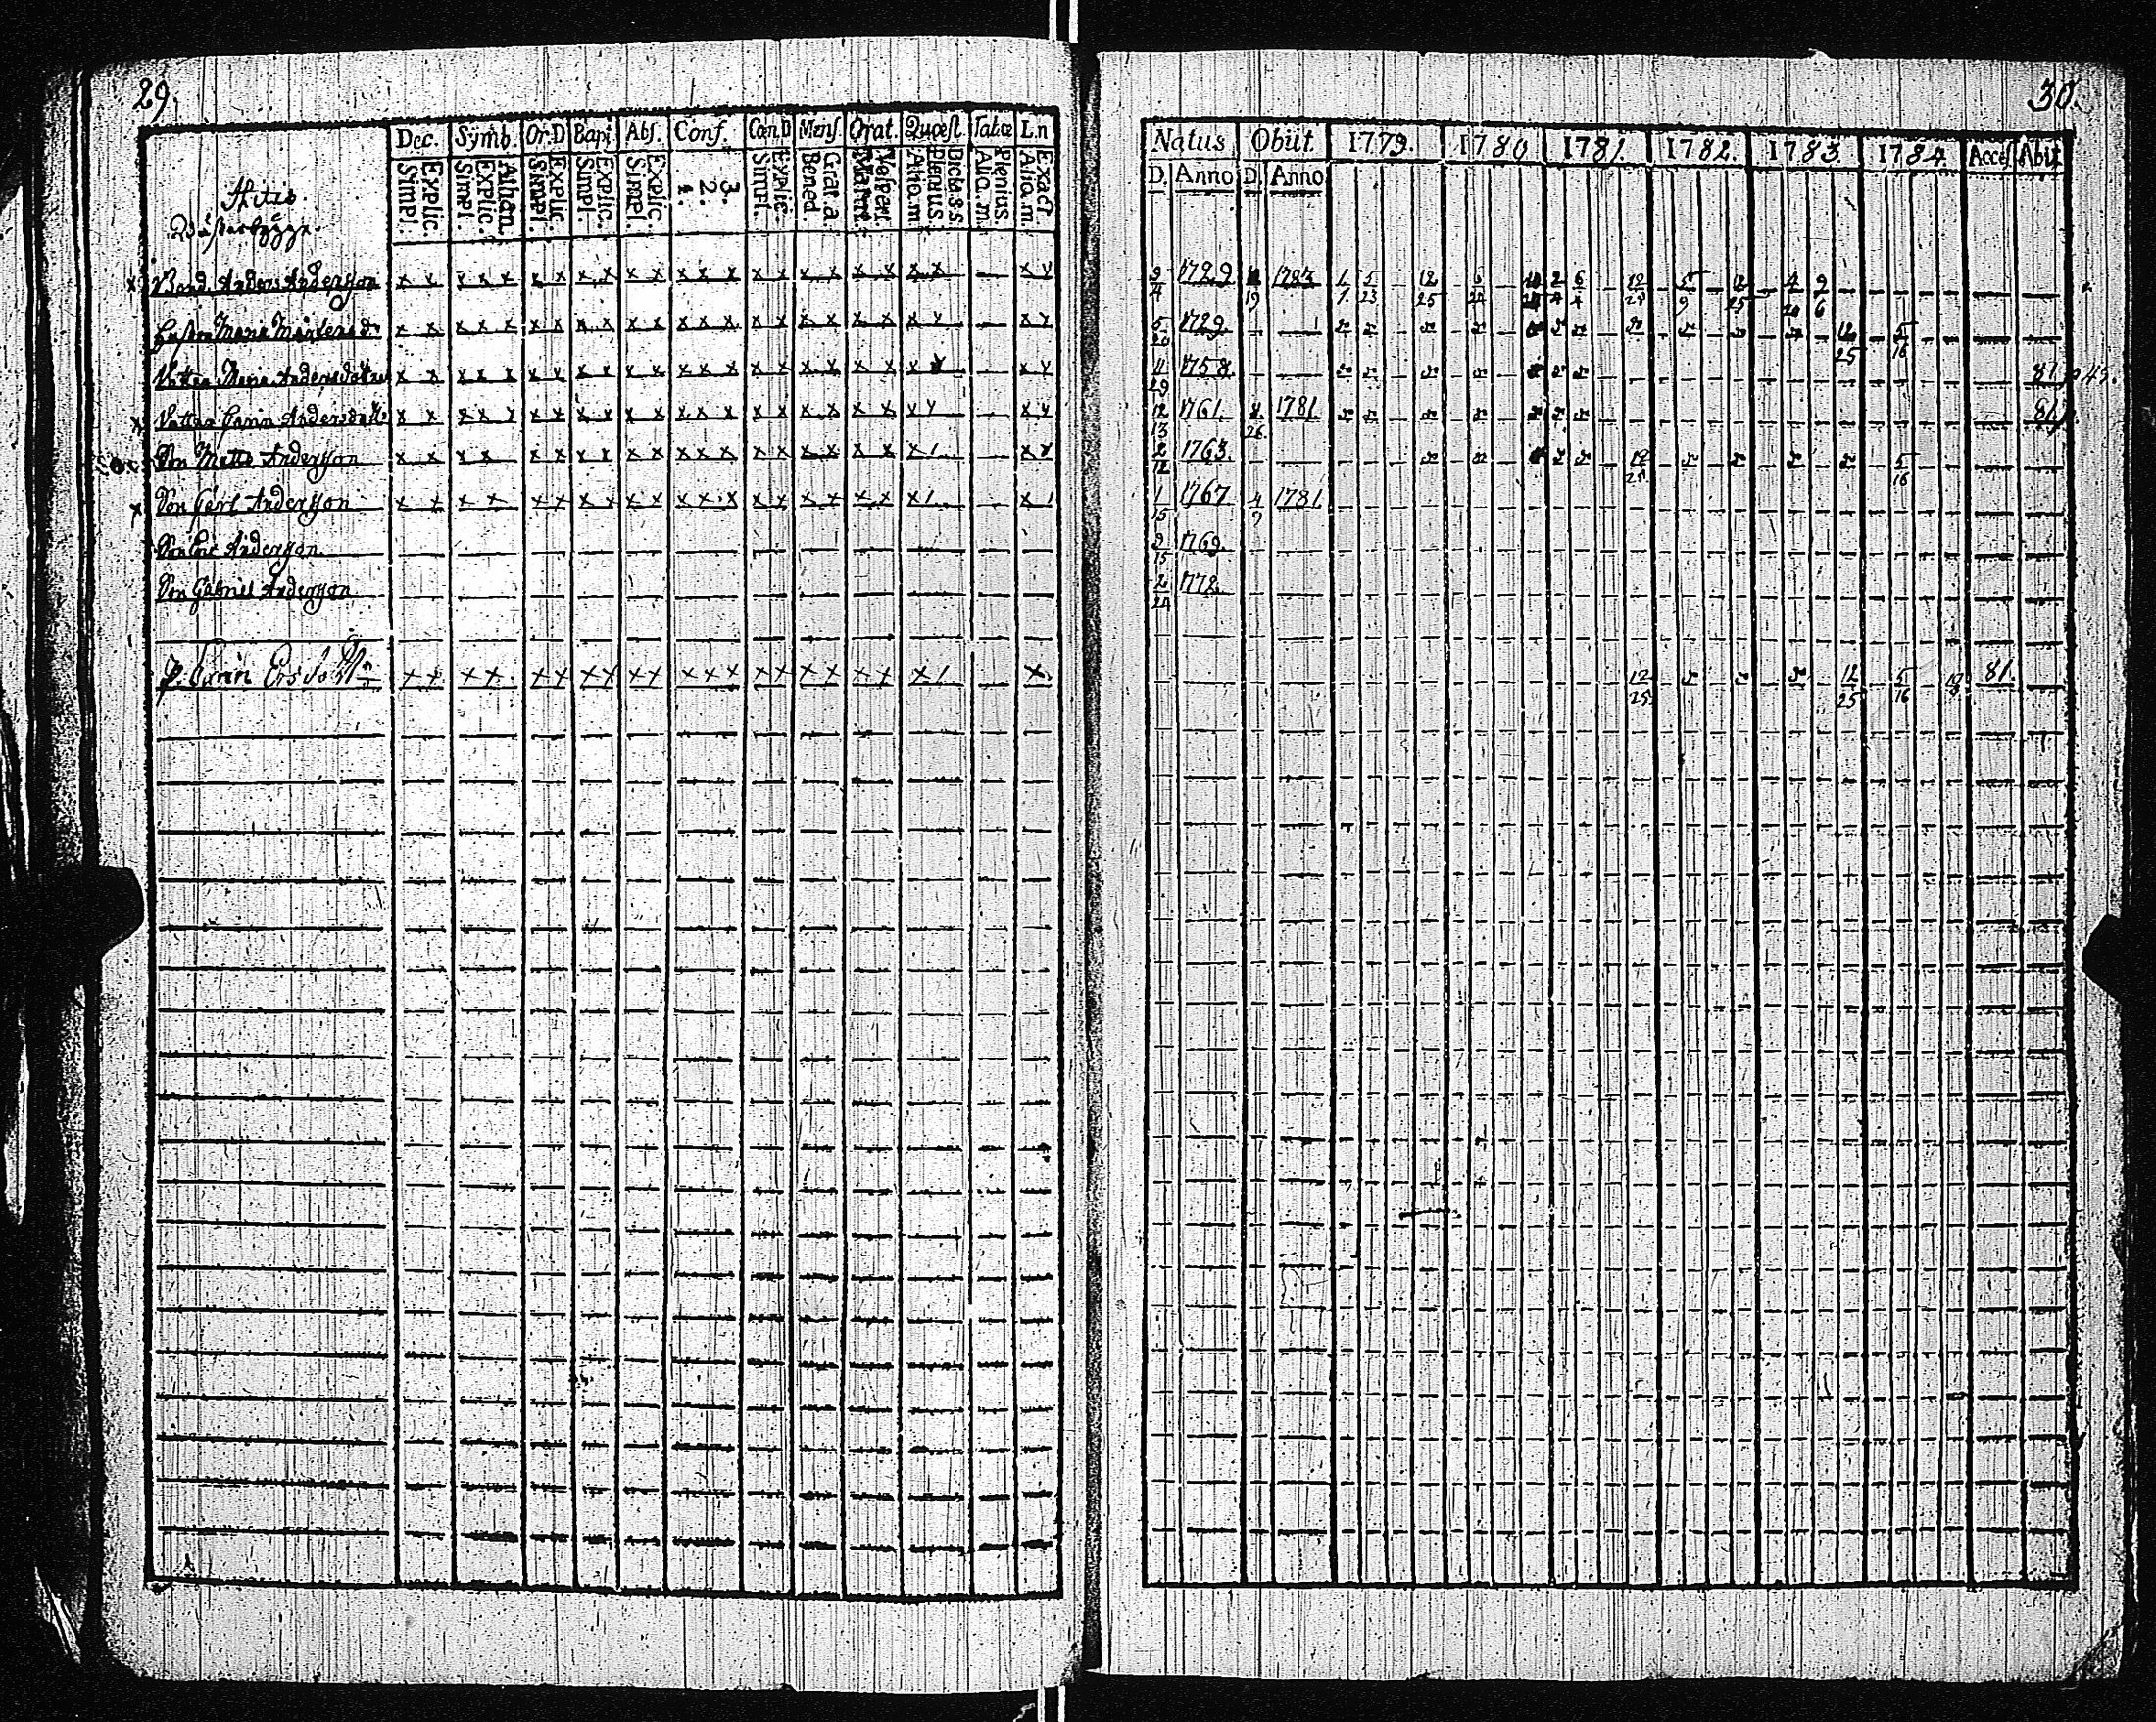 29.
Dec. Symb. Or.D Bapt. Abs. Conf. Cœn.D Mens. Orat. Quæst. Tabœ L.n
Explic. Simpl. Athan. Explic. Simpl. Explic. Simpl. Explic. Simpl. Explic. Simpl. 3. 2. 1. Explic. Simpl. Grat. a. Bened. Vespert. Matut. Dicta.s.s. Plenius. Alio.m. Plenius. Alia.m. Exact. Alia.m.
Wästerbygge.
x Bond. Anders Andersson x x x x x x x x x x x x x x x x x x x x x x x x y
Hustru Maria x x x x x x x x x x x x x x x x x x x x x y x y
Dotter Maria Andersdotter x x x x x x x x x x x x x x x x x x x x x x x y
x Dotter Carin Andersdott: x x x x y x x x x x x x x x x x x x x x x y x y
Son Matts Andersson x x x x x x x x x x x x x x x x x x x x 1 x x
x Son Carl Andersson x x x x x x x x x x x x x x x x x x x x 1 x 1
Son Eric Andersson
Son Gabriel Andersson
P. Carin Ersdott: x x x x x x x x x x x x x x x x x x x x 1 x
30.
Natus Obiit. 1779. 1780 1781. 1782. 1783. 1784. Acces. Abiit
D. Anno D. Anno
9/4 1729 19 1783 1/1 5/23 12/25 2/4 6/4 12/25 5/9 12/25 4/20 9/6
5/20 1729. 12/25 5/16
11/29 1758 81 p 45.
12/13 1761 26 1781 81
2/12 1763. 12/25 5/16
1/15 1767 4/9 1781
9/15 1769.
2/24 1772
12/25 12/25 5/16 81.